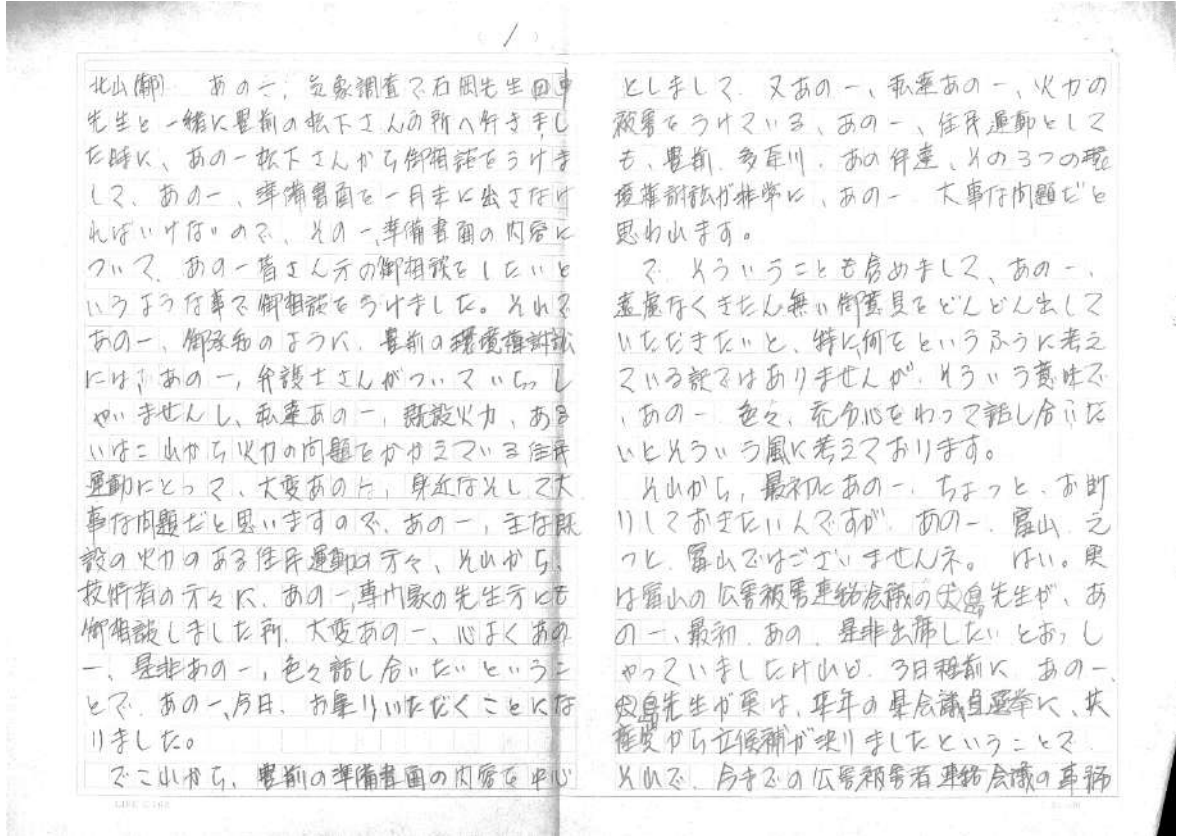 1
北山(郁) あのー、気象調査で石岡先生回車
先生と一緒に豊前の松下さんの所へ行きまし
た時に、あのー松下さんから御相談をうけま
して、あのー、準備書面を一月末に出さなけ
ればいけないので、そのー、準備書面の内容に
ついて、あのー皆さん方の御相談をしたいと
いうような事で御相談をうけました。それで
あのー、御承知のように、豊前の環境権訴訟
には、あのー、弁護士さんがついていらっし
ゃいませんし、私達あのー、既設火力、ある
いはこれから火力の問題をかかえている住民
運動にとって、大変あのー、身近なそして大
事な問題だと思いますので、あのー、主な既
設の火力のある住民運動の方々、それから、
技術者の方々に、あのー、専門家の先生方にも
御相談しました所、大変あのー、心よくあの
ー、是非あのー、色々話し合いたいというこ
とで、あのー、今日、お集りいただくことにな
りました。
でこれから、豊前の準備書面の内容を中心
としまして、又あのー、私達あのー、火力の
被害をうけている、あのー、住民運動として
も、豊前、多奈川、あの伊達、その3つの環
境権訴訟が非常に、あのー、大事な問題だと
思われます。
で、そういうことも含めまして、あのー、
遠慮なくきたん無い御意見をどんどん出して
いただきたいと、特に何をというふうに考え
ている訳ではありませんが、そういう意味で
、あのー、色々、充分心をわって話し合いた
いとそういう風に考えております。
それから、最初にあのー、ちょっと、お断
りしておきたいんですが、あのー、富山、え
っと、富山ではございませんネ。はい。実
は富山の公害被害連絡会議の 先生が、あ
のー、最初、あの、是非出席したいとおっし
ゃっていましたけれど、3日程前に、あのー、
先生が実は、来年の県会議員選挙に、共
産党から立候補が決りましたということで、
それで、今までの公害被害者連絡会議の事務